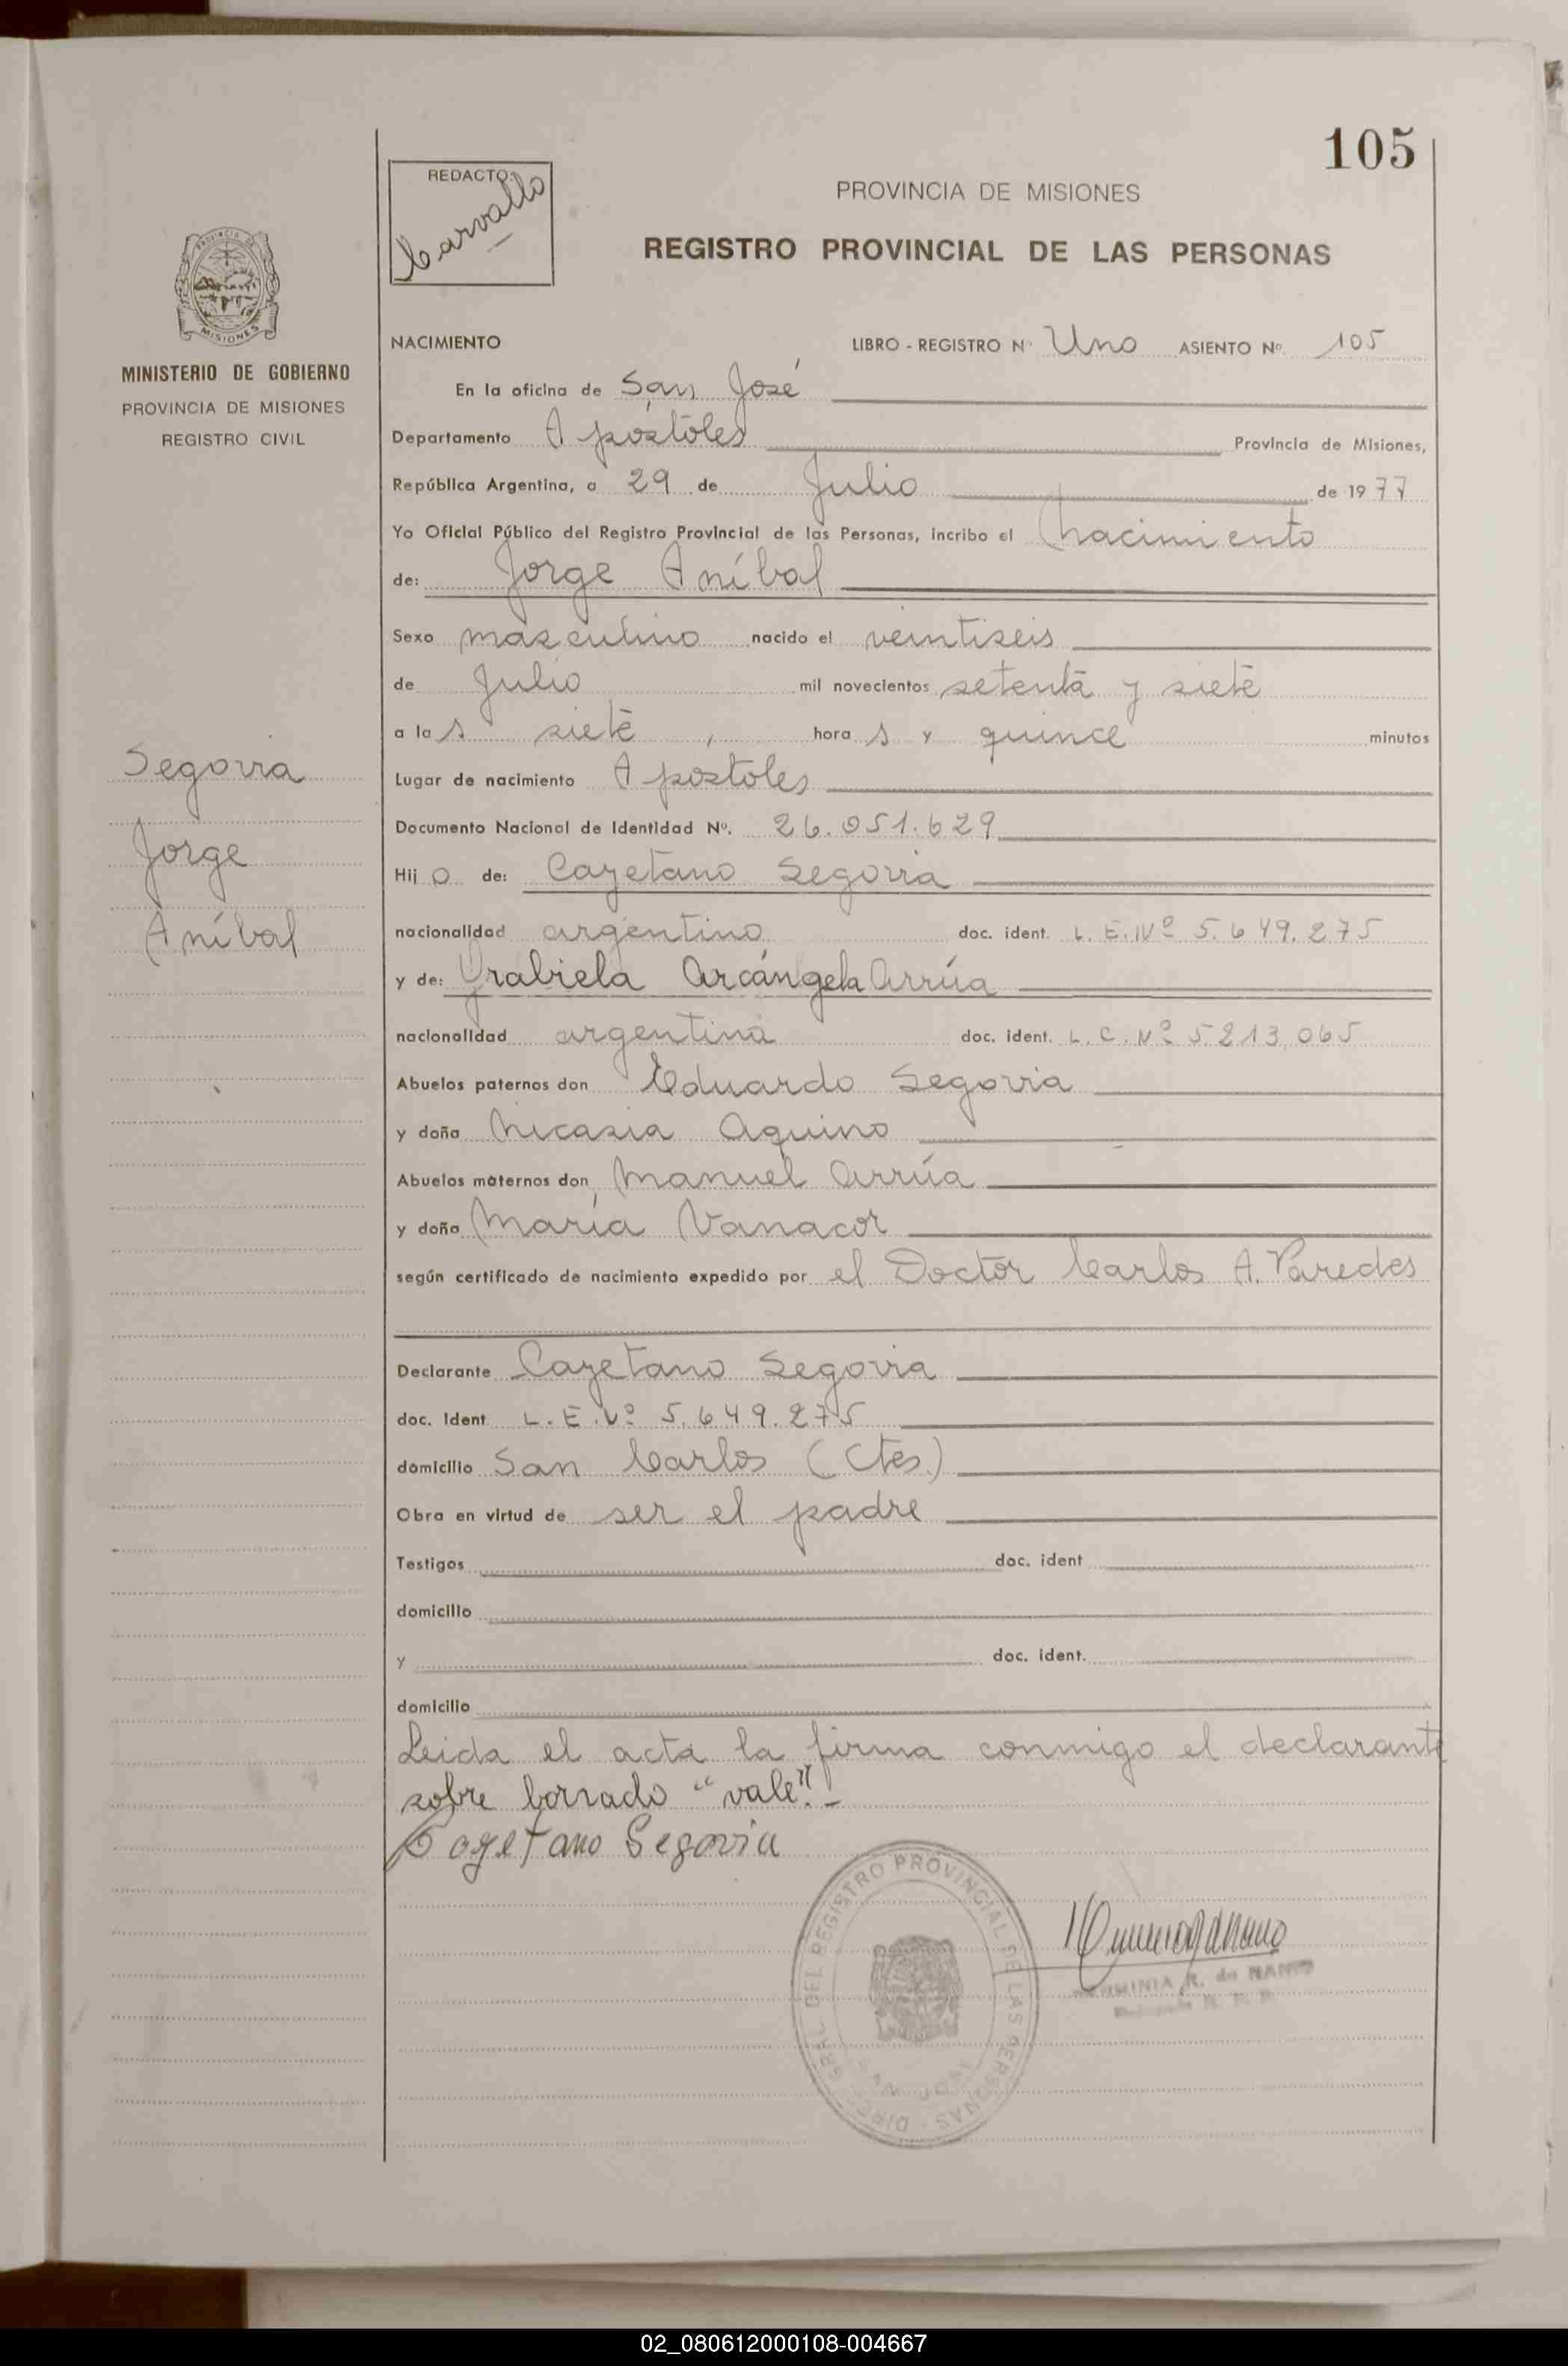 105
REDACTO:
Carvallo
PROVINCIA DE MISIONES
REGISTRO PROVINCIAL DE LAS PERSONAS
MISIONES
MINISTERIO DE GOBIERNO
PROVINCIA DE MISIONES
REGISTRO CIVIL
NACIMIENTO LIBRO - REGISTRO Nº Uno ASIENTO Nº. 105
En la oficina de San José
Departamento Apóstoles Provincia de Misiones,
República Argentina, a 29 de Julio de 1977
Yo Oficial Público del Registro Provincial de las Personas, incribo el nacimiento
de: Jorge Aníbal
Sexo masculino nacido el veintiseis
de Julio mil novecientos setenta y siete
a las siete, horas y quince minutos
Lugar de nacimiento Apostoles
Documento Nacional de Identidad Nº. 26.051.629
Hijo de: Cayetano Segovia
nacionalidad argentino doc. ident. L.E.Nº 5.649.275
y de: Grabiela Arcángela Arrúa
nacionalidad argentina doc. ident. L.C.Nº 5.213.065
Abuelos paternos don Eduardo Segovia
y doña Nicasia Aquino
Abuelos maternos don Manuel Arrúa
y doña María Vanacor
según certificado de nacimiento expedido por el Doctor Carlos A. Paredes
Declarante Cayetano Segovia
doc. Ident L.E.Nº 5.649.275
domicilio San Carlos (Ctes.)
Obra en virtud de ser el padre
Testigos doc. ident
domicilio
y doc. ident.
domicilio
Leida el acta la firma conmigo el declarante
sobre borrado "vale".-
Cayetano Segovia
Segovia
Jorge
Aníbal
DIREC. GRAL. DEL REGISTRO PROVINCIAL DE LAS PERSONAS
SAN JOSE
HERMINIA R. de
02_080612000108-004667